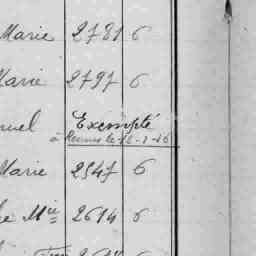 Marie 2781 6
Marie 2797 6
uel Exempté
à Rennes le 12-1-16
Marie 2547 6
Mie 2614 6